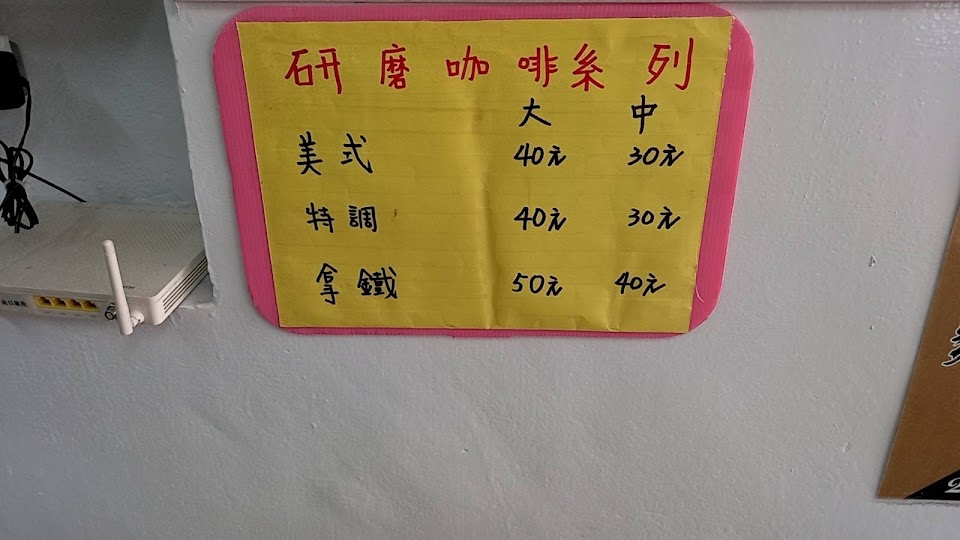 研磨咖啡系列
大 中
美式 40元 30元
特調 40元 30元
拿鐵 50元 40元